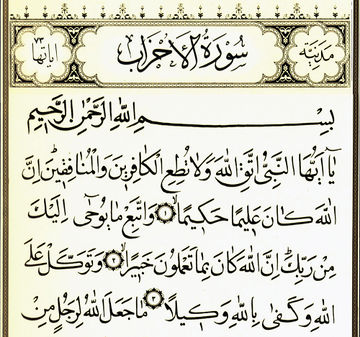 مدنية سورة الاحزاب اياتها ٧٣
بسم الله الرحمن الرحيم
يا أيها النبي اتق الله ولا تطع الكافرين والمنافقين إن
الله كان عليما حكيما ١ واتبع ما يوحى إليك
من ربك إن الله كان بما تعملون خبيرا ٢ وتوكل على
الله وكفى بالله وكيلا ٣ ما جعل الله لرجل من